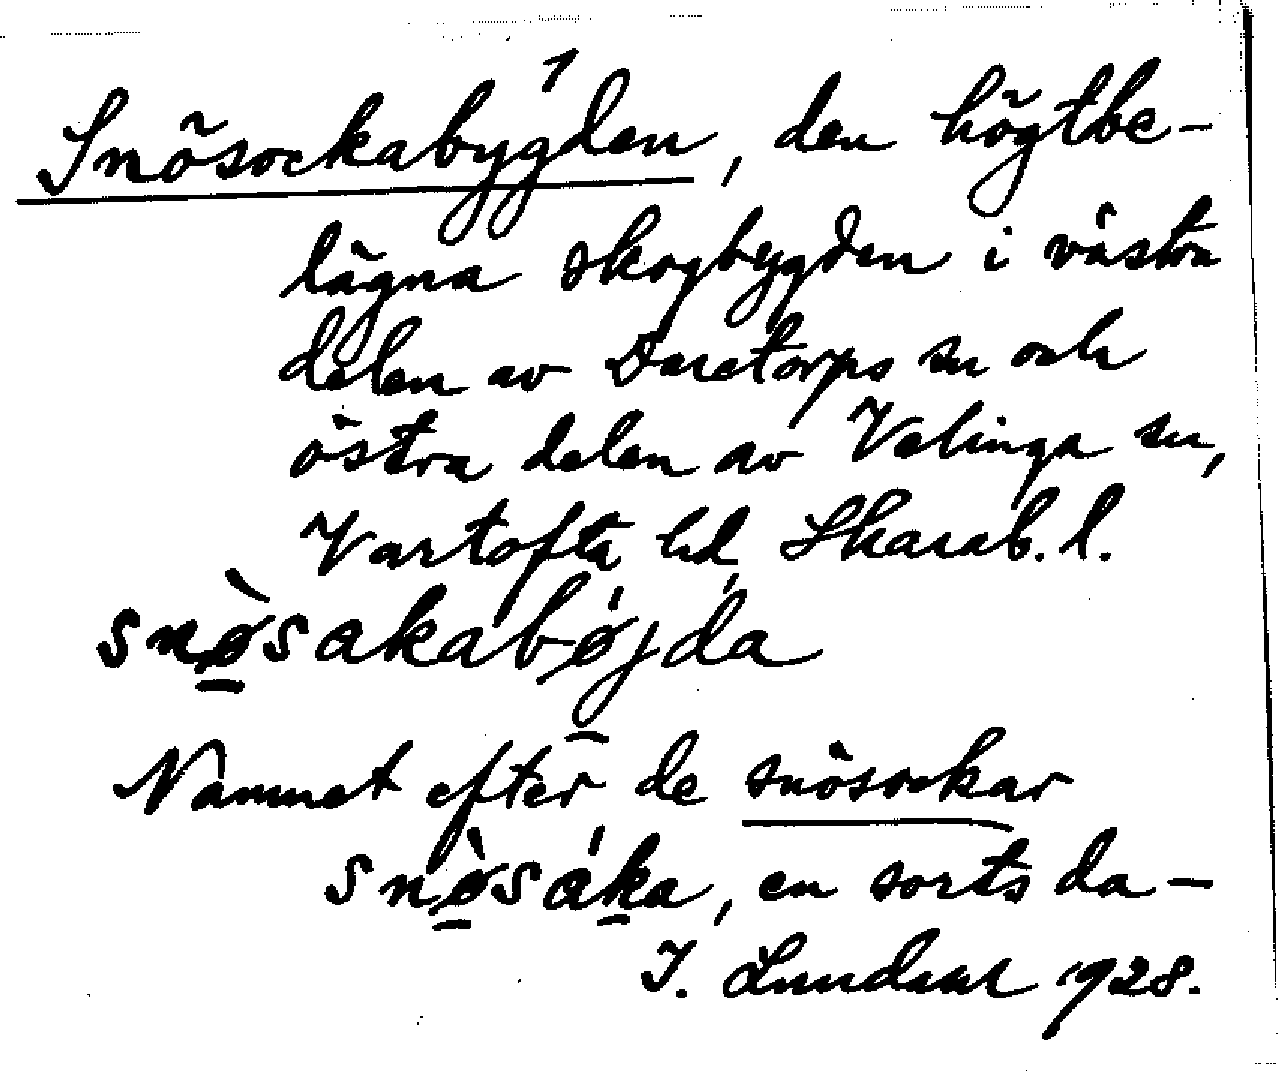 1
Snösockabygden, den högtbe-
lägna skogbygden i västra
delen av Daretorps sn och
östra delen av Velinga sn,
Vartofta hd, Skarab. l.
snø̱̀sakabǿjda
Namnet efter de snösockar
snø̱̀sáḵa, en sorts da-
J. Lundahl 1928.